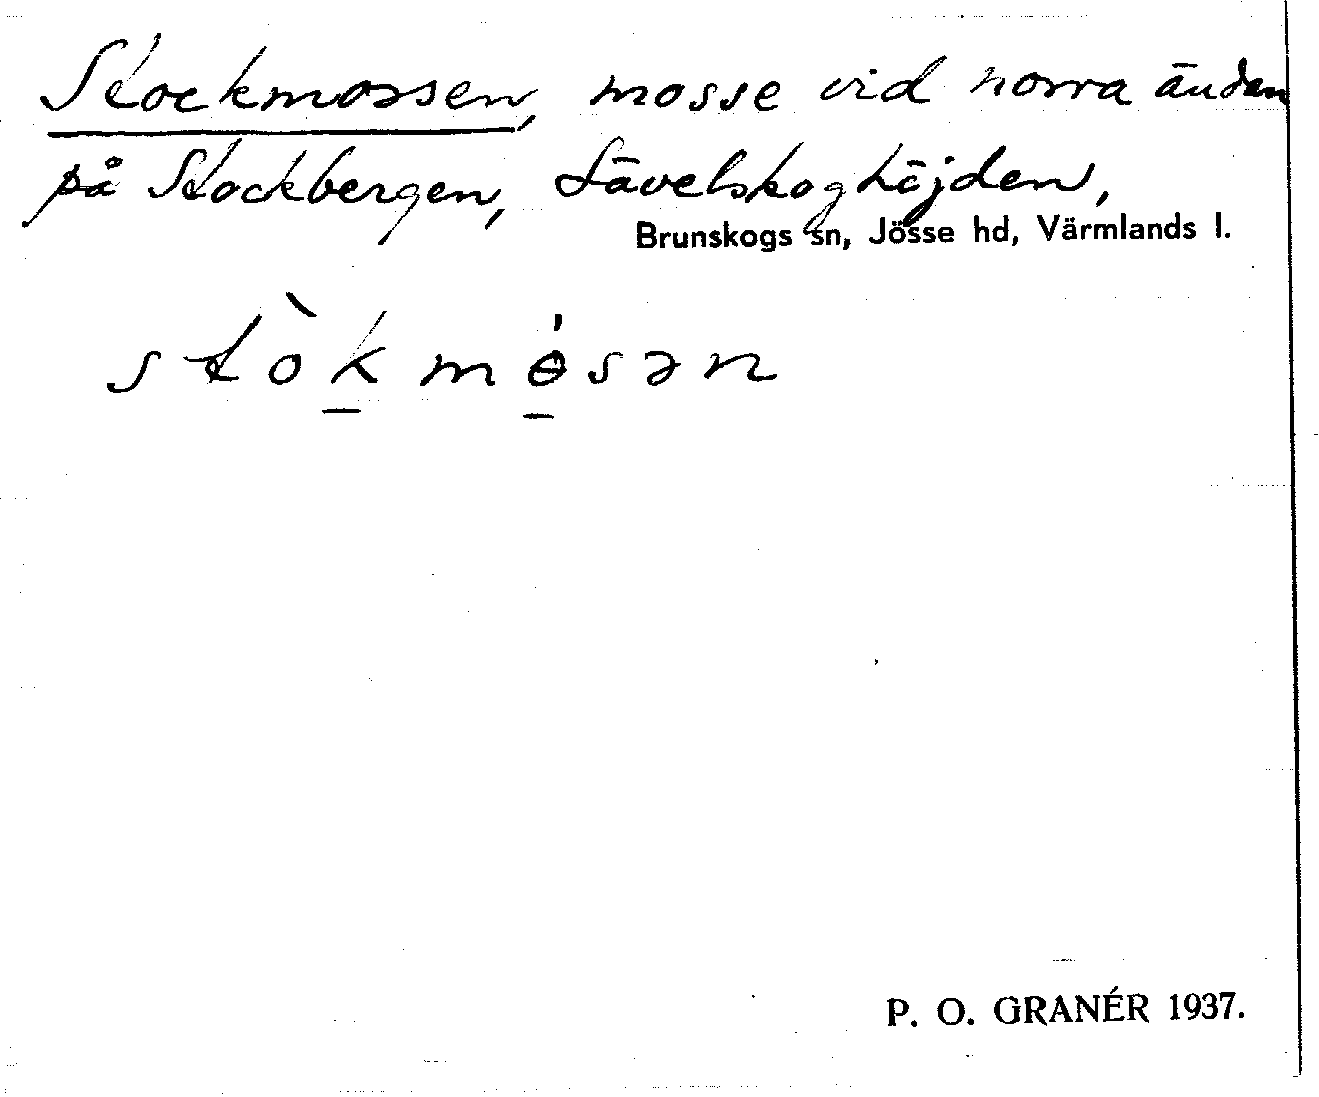 Stockmossen, mosse vid norra änden
på Stockbergen, Sävelskoghöjden,
Brunskogs sn, Jösse hd, Värmlands l.
stòk̠ mɵ̠́sən
P. O. GRANÉR 1937.